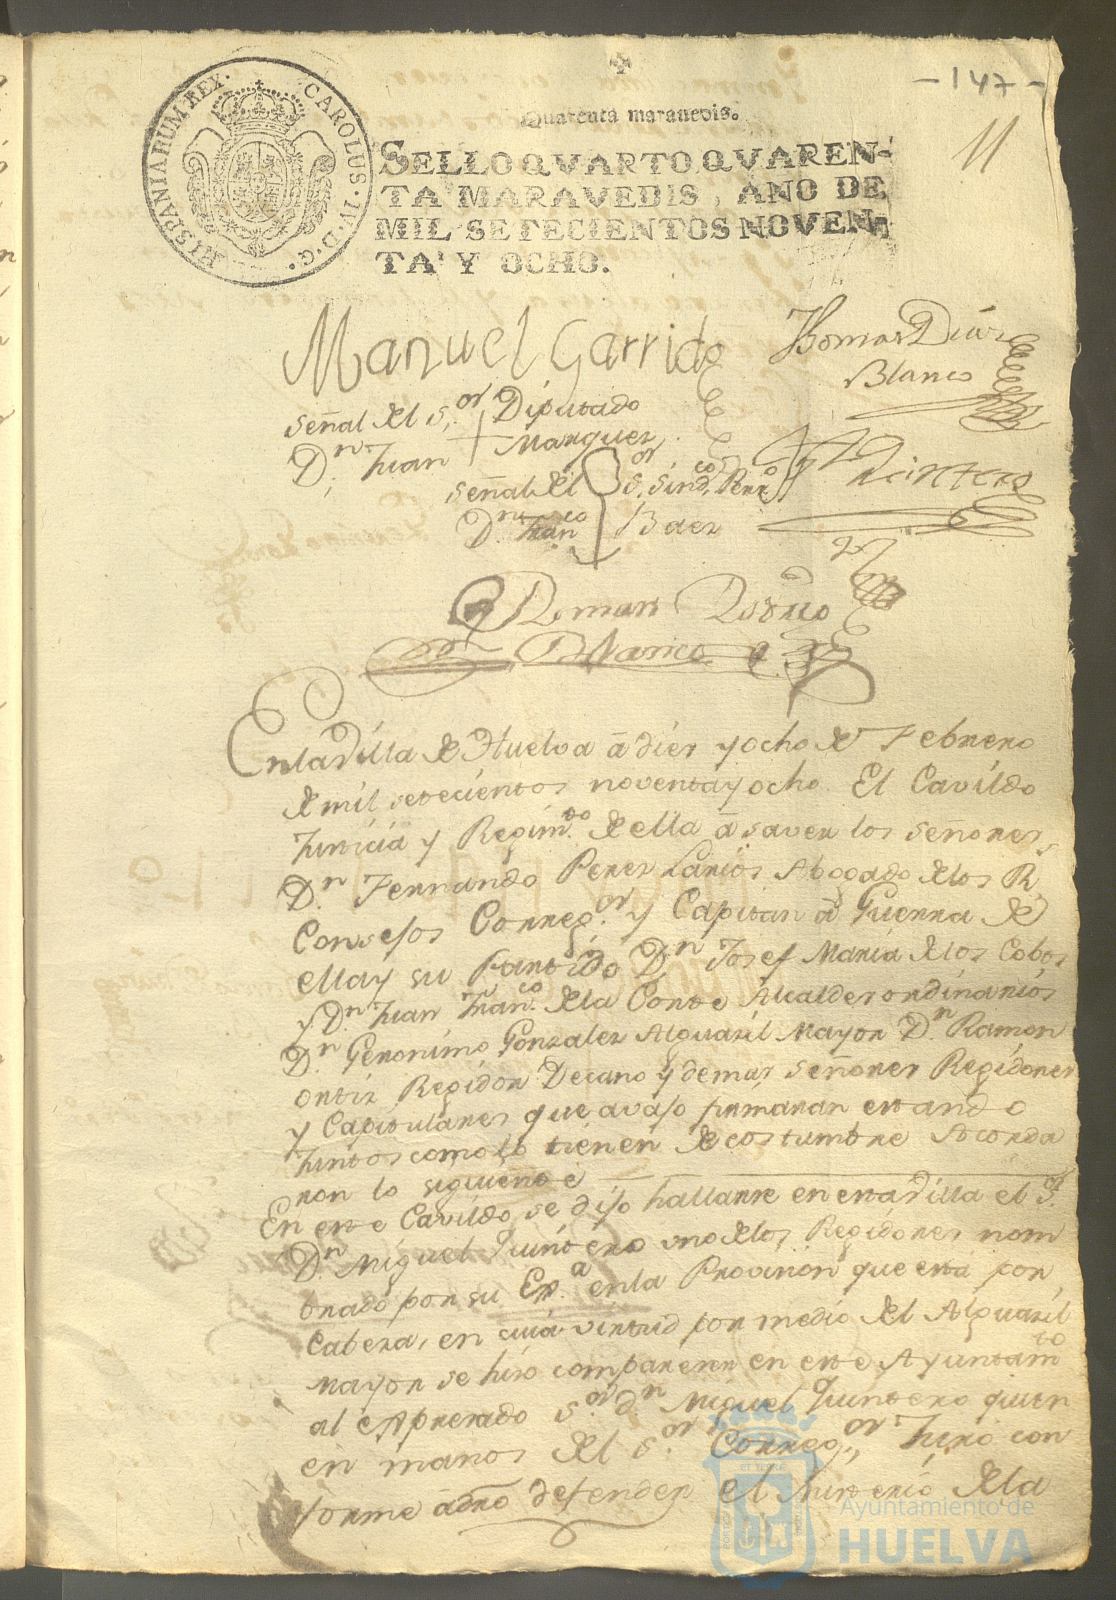 -147-
11
Quarenta maravedis.
SELLO QVARTO, QVAREN-
TA MARAVEDIS, AÑO DE
MIL SETECIENTOS NOVEN-
TA Y OCHO.
HISPANIARUM REX. CAROLUS. IV. D. G.
Manuel Garrido
Thomas Diaz
Blanco
señal del s.or Diputado
D.n Juan + Marquez
señal del s.or sind.co Perz.o
D.n Fran.co Baez
Quintero
Roman
Blanco
En la Villa de Huelva â diez y ocho de Febrero
de mil setecientos noventa y ocho. El Cavildo
Justicia y Regim.to de ella â saver los señores
D.n Fernando Perez Larios Abogado de los R.s
Consejos Correg.or y Capitan â Guerra de
ella y su Partido D.n Josef Maria de los Cobos
y D.n Juan Fran.co de la Corte Alcaldes ordinarios
D.n Geronimo Gonzalez Alguazil Mayor D.n Ramon
ortiz Regidor Decano y demas señores Regidores
y Capitulares que avajo firmaran estando
Juntos como lo tienen de costumbre Acorda
ron lo siguiente
En este Cavildo se dijo hallarse en esta Villa el S.or
D.n Miguel Quintero uno de los Regidores nom
brado por su Ex.a en la Provision que esta por
Cabeza, en cuia virtud por medio del Alguazil
Mayor se hizo comparecer en este Ayuntam.to
al expresado s.or d.n Miguel Quintero quien
en manos del s.or Correg.or Juro con
forme â dro defender el Misterio de la
Ayuntamiento de
HUELVA